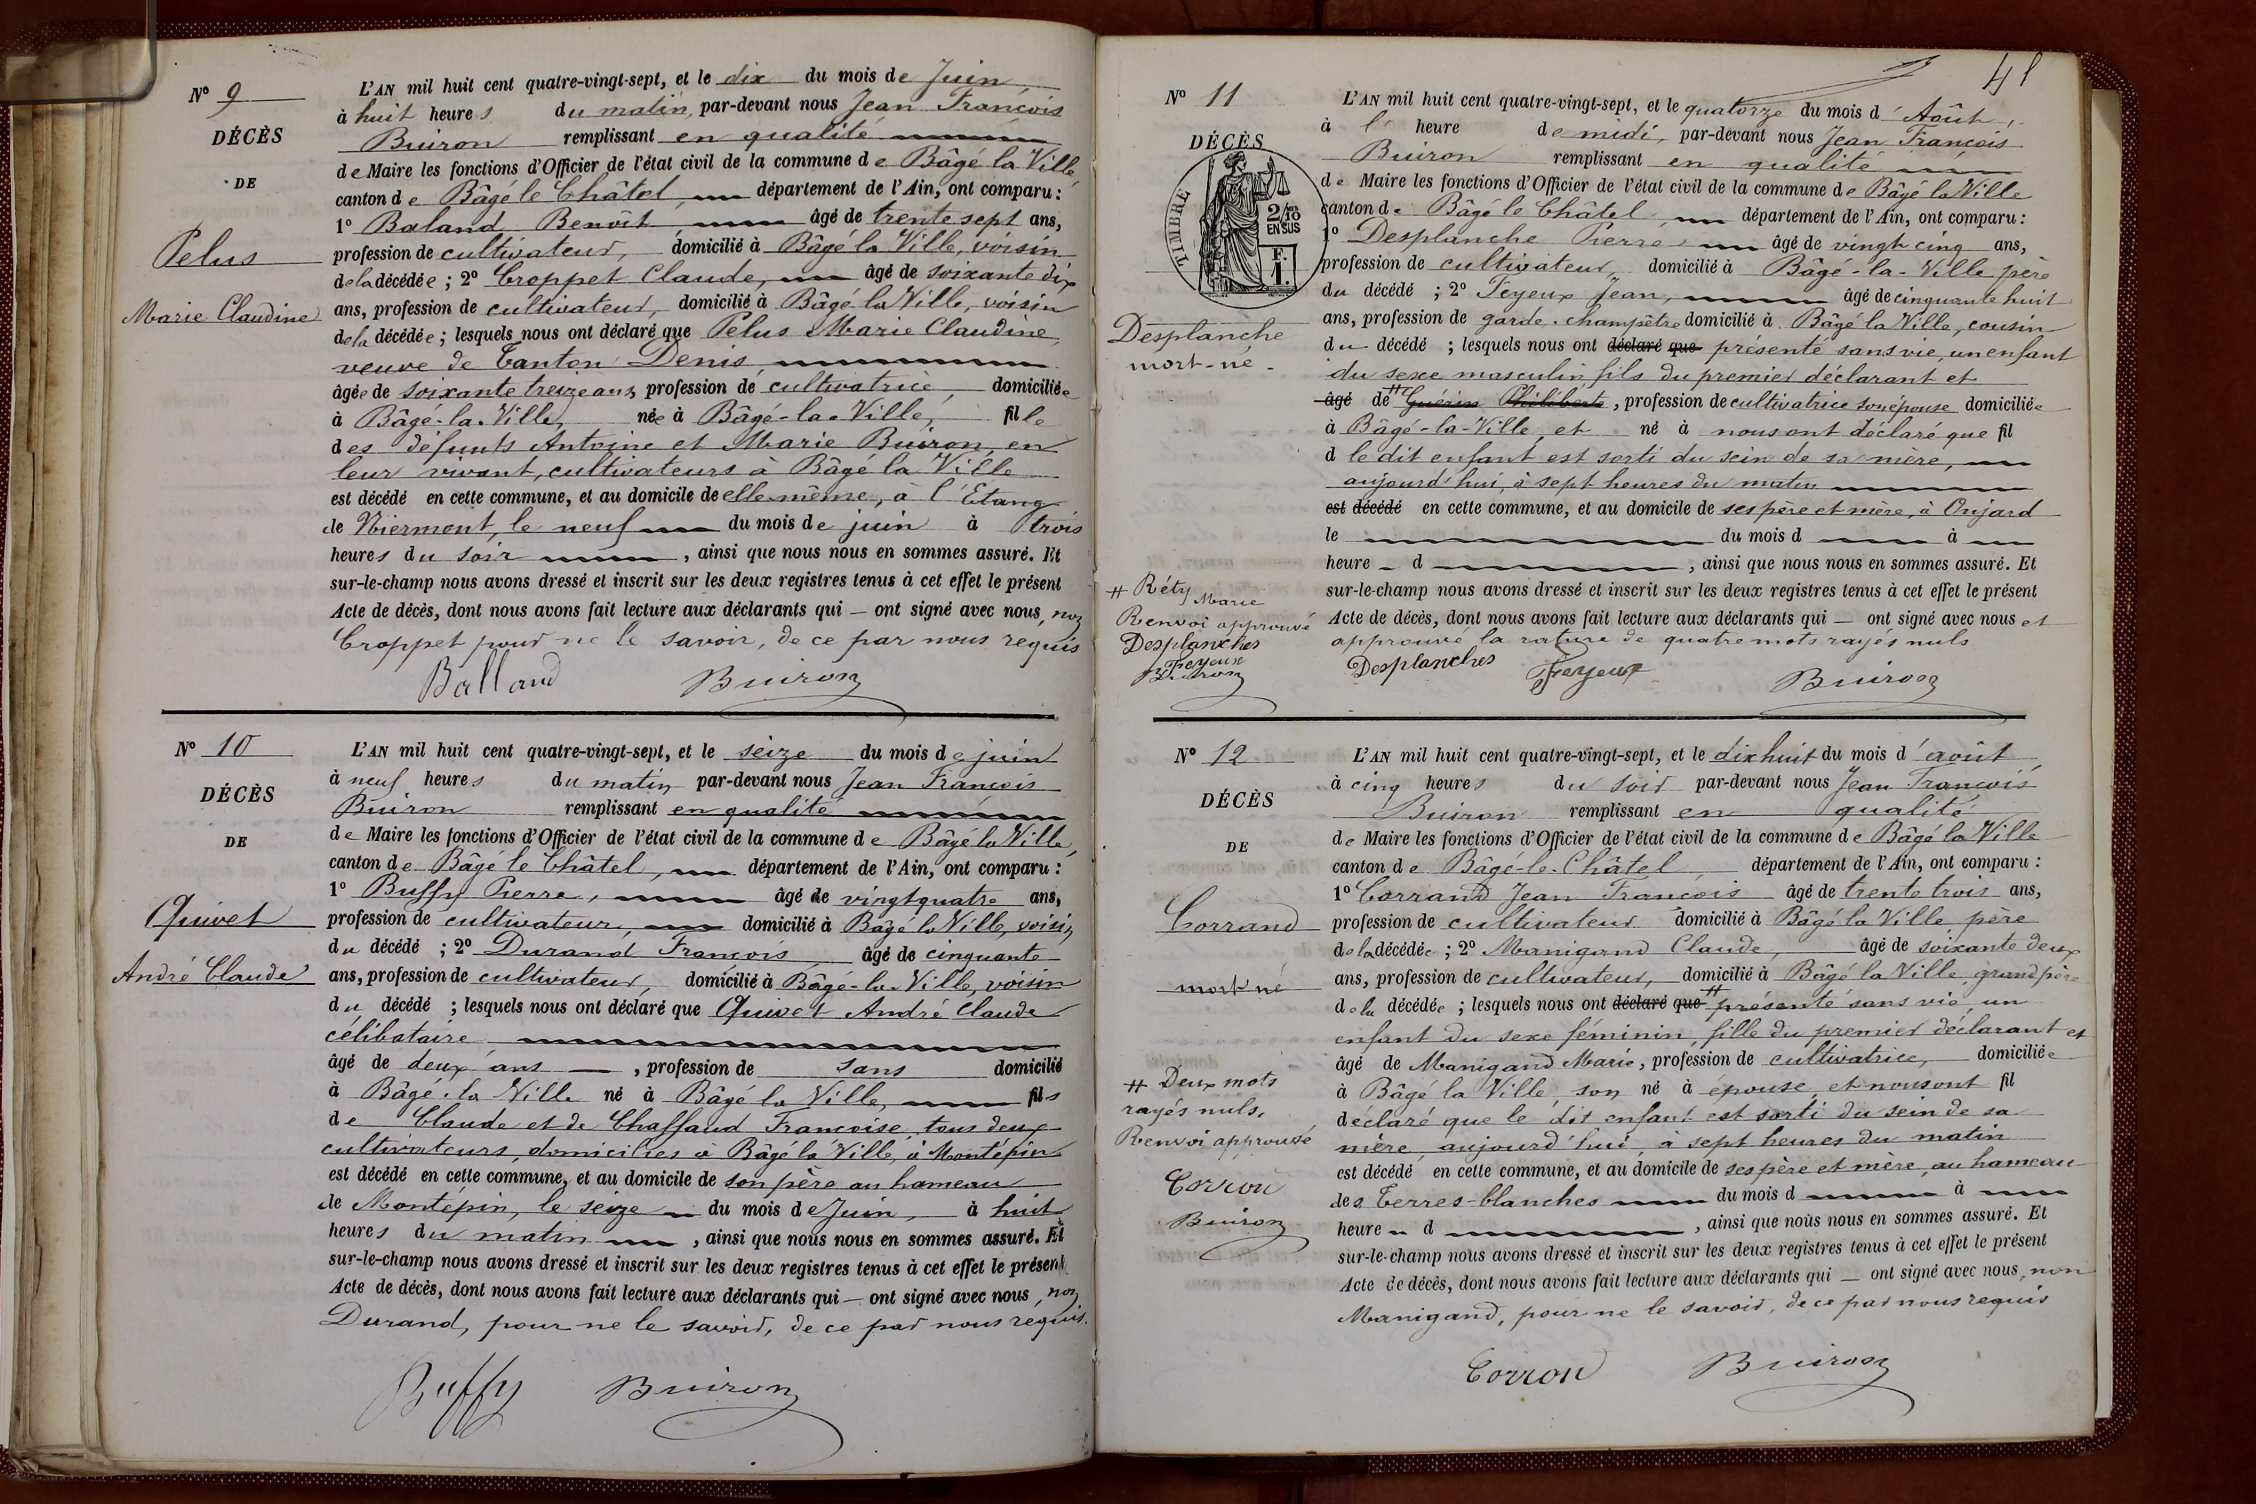 N° 9
DÉCÈS
DE
Pelus
Marie Claudine
L'AN mil huit cent quatre-vingt-sept, et le dix du mois de Juin
à huit heures du matin, par-devant nous Jean François
Buiron remplissant en qualité
de Maire les fonctions d'Officier de l'état civil de la commune de Bâgé la Ville,
canton de Bâgé le Châtel, département de l'Ain, ont comparu :
1° Baland Benoît âgé de trente sept ans,
profession de cultivateur, domicilié à Bâgé la Ville, voisin
de la décédée ; 2° Croppet Claude, âgé de soixante dix
ans, profession de cultivateur, domicilié à Bâgé la Ville, voisin
de la décédée ; lesquels nous ont déclaré que Pelus Marie Claudine,
veuve de Tanton Denis
âgée de soixante treize ans, profession de cultivatrice, domiciliée
à Bâgé-la-Ville, née à Bâgé-la-Ville, fille
des défunts Antoine et Marie Buiron, en
leur vivant, cultivateurs à Bâgé la Ville
est décédé en cette commune, et au domicile de elle-même, à l'Etang
de Niermont, le neuf du mois de juin à trois
heures du soir , ainsi que nous nous en sommes assuré. Et
sur-le-champ nous avons dressé et inscrit sur les deux registres tenus à cet effet le présent
Acte de décès, dont nous avons fait lecture aux déclarants qui — ont signé avec nous, non
Croppet pour ne le savoir, de ce par nous requis
Balland Buiron
N° 10
DÉCÈS
DE
Quivet
André Claude
L'AN mil huit cent quatre-vingt-sept, et le seize du mois de juin
à neuf heures du matin par-devant nous Jean François
Buiron remplissant en qualité
de Maire les fonctions d'Officier de l'état civil de la commune de Bâgé la Ville,
canton de Bâgé le Châtel, département de l'Ain, ont comparu :
1° Buffy Pierre, âgé de vingt quatre ans,
profession de cultivateur, domicilié à Bâgé la Ville, voisin
du décédé ; 2° Durand François âgé de cinquante
ans, profession de cultivateur, domicilié à Bâgé-la-Ville, voisin
du décédé ; lesquels nous ont déclaré que Quivet André Claude
célibataire
âgé de deux ans — , profession de sans domicilié
à Bâgé-la Ville né à Bâgé la Ville, fils
de Claude et de Chaffaud Françoise, tous deux
cultivateurs, domiciliés à Bâgé la Ville, à Montépin
est décédé en cette commune, et au domicile de son père au hameau
de Montépin, le seize du mois de Juin, à huit
heures du matin , ainsi que nous nous en sommes assuré. Et
sur-le-champ nous avons dressé et inscrit sur les deux registres tenus à cet effet le présent
Acte de décès, dont nous avons fait lecture aux déclarants qui — ont signé avec nous, non
Durand, pour ne le savoir, de ce par nous requis.
Buffy Buiron
41
N° 11
DÉCÈS
TIMBRE
2/10 EN SUS
F. 1.
Desplanche
mort-né
L'AN mil huit cent quatre-vingt-sept, et le quatorze du mois d'Août,
à l' heure de midi, par-devant nous Jean François
Buiron remplissant en qualité
de Maire les fonctions d'Officier de l'état civil de la commune de Bâgé la Ville
canton de Bâgé le Châtel département de l'Ain, ont comparu :
1° Desplanche Pierre âgé de vingt cinq ans,
profession de cultivateur, domicilié à Bâgé-la-Ville père
du décédé ; 2° Feyeux Jean, âgé de cinquante huit
ans, profession de garde-champêtre domicilié à Bâgé la Ville, cousin
du décédé ; lesquels nous ont déclaré que présenté sans vie, un enfant
du sexe masculin fils du premier déclarant et
âgé de # Guérin Philiberte, profession de cultivatrice son épouse domiciliée
à Bâgé-la-Ville, et né à nous ont déclaré que fil
d le dit enfant est sorti du sein de sa mère,
aujourd'hui, à sept heures du matin
est décédé en cette commune, et au domicile de ses père et mère, à Onjard
le du mois d à
heure d , ainsi que nous nous en sommes assuré. Et
sur-le-champ nous avons dressé et inscrit sur les deux registres tenus à cet effet le présent
Acte de décès, dont nous avons fait lecture aux déclarants qui — ont signé avec nous et
approuvé la rature de quatre mots rayés nuls
Desplanches Feyeux Buiron
# Réty Marie
Renvoi approuvé
Desplanches
Feyeux
Buiron
N° 12
DÉCÈS
DE
Corrand
mort né
L'AN mil huit cent quatre-vingt-sept, et le dix huit du mois d'août
à cinq heures du soir par-devant nous Jean François
Buiron remplissant en qualité
de Maire les fonctions d'Officier de l'état civil de la commune de Bâgé la Ville
canton de Bâgé-le-Châtel, département de l'Ain, ont comparu :
1° Corrand Jean François âgé de trente trois ans,
profession de cultivateur domicilié à Bâgé la Ville père
de la décédée ; 2° Manigand Claude, âgé de soixante deux
ans, profession de cultivateur, domicilié à Bâgé la Ville, grand père
de la décédée ; lesquels nous ont déclaré que # présenté sans vie, un
enfant du sexe féminin, fille du premier déclarant et
âgé de Manigand Marie, profession de cultivatrice, domiciliée
à Bâgé la Ville, son né à épouse, et nous ont fil
déclaré que le dit enfant est sorti du sein de sa
mère, aujourd'hui, à sept heures du matin
est décédé en cette commune, et au domicile de ses père et mère, au hameau
des Terres-blanches du mois d à
heure d , ainsi que nous nous en sommes assuré. Et
sur-le-champ nous avons dressé et inscrit sur les deux registres tenus à cet effet le présent
Acte de décès, dont nous avons fait lecture aux déclarants qui — ont signé avec nous, non
Manigand, pour ne le savoir, de ce par nous requis
Corron Buiron
# Deux mots
rayés nuls.
Renvoi approuvé
Corron
Buiron